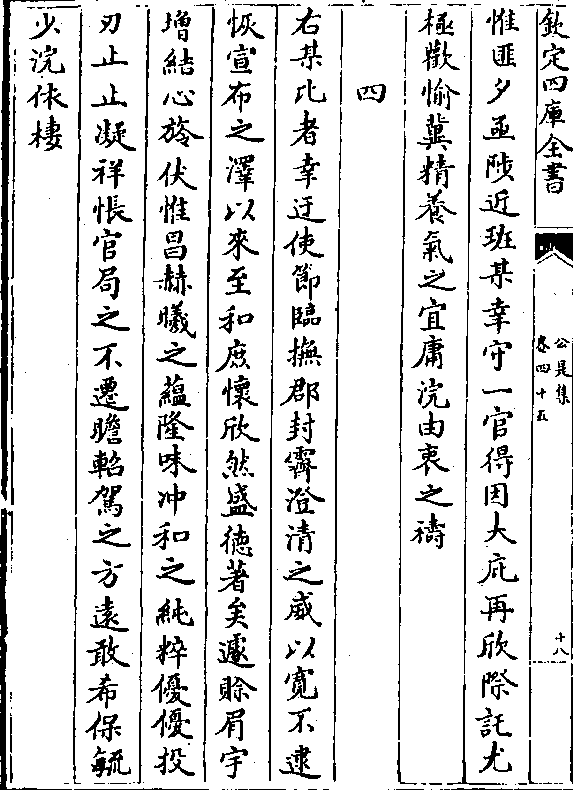 欽定四庫全書
公是集
卷四十五
十八
惟匪夕亟陟近班某幸守一官得因大庇再欣際託尤
極歡愉冀精養氣之宜庸浣由衷之禱
四
右某比者幸迂使節臨撫郡封霽澄清之威以寛不逮
恢宣布之澤以來至和庶懐欣然盛德著矣遽賒眉宇
増結心旌伏惟昌赫曦之藴隆味冲和之純粹優優投
刃止止凝祥悵官局之不遷瞻軺駕之方逺敢希保毓
少浣依棲